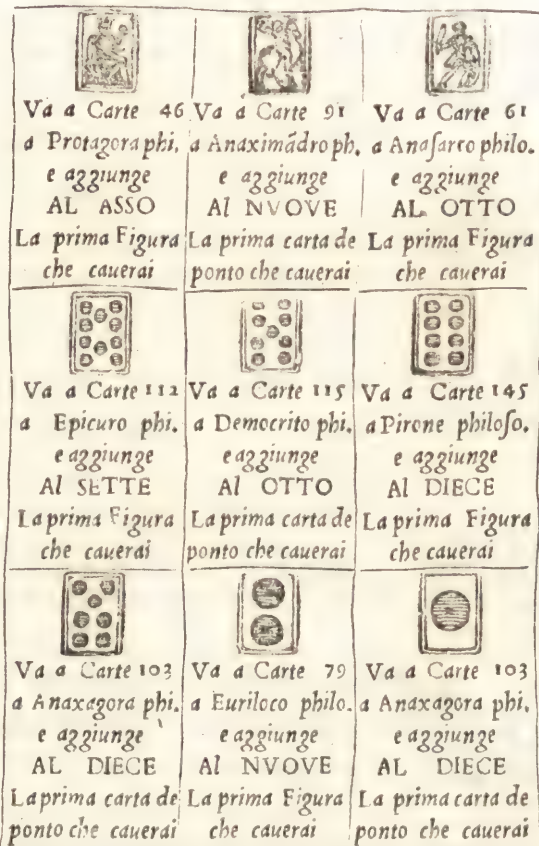 Va a Carte 46
a Protagora phi.
e aggiunge
AL ASSO
La prima Figura
che cauerai
Va a Carte 91
a Anaximãdro ph.
e aggiunge
Al NVOVE
La prima carta de
ponto che cauerai
Va a Carte 61
a Anaſarco philo.
e aggiunge
AL OTTO
La prima Figura
che cauerai
Va a Carte 112
a Epicuro phi.
e aggiunge
Al SETTE
La prima Figura
che cauerai
Va a Carte 115
a Democrito phi.
e aggiunge
Al OTTO
La prima carta de
ponto che cauerai
Va a Carte 145
a Pirone philoſo.
e aggiunge
Al DIECE
La prima Figura
che cauerai
Va a Carte 103
a Anaxagora phi.
e aggiunge
AL DIECE
La prima carta de
ponto che cauerai
Va a Carte 79
a Euriloco philo.
e aggiunge
Al NVOVE
La prima Figura
che cauerai
Va a Carte 103
a Anaxagora phi.
e aggiunge
AL DIECE
La prima carta de
ponto che cauerai